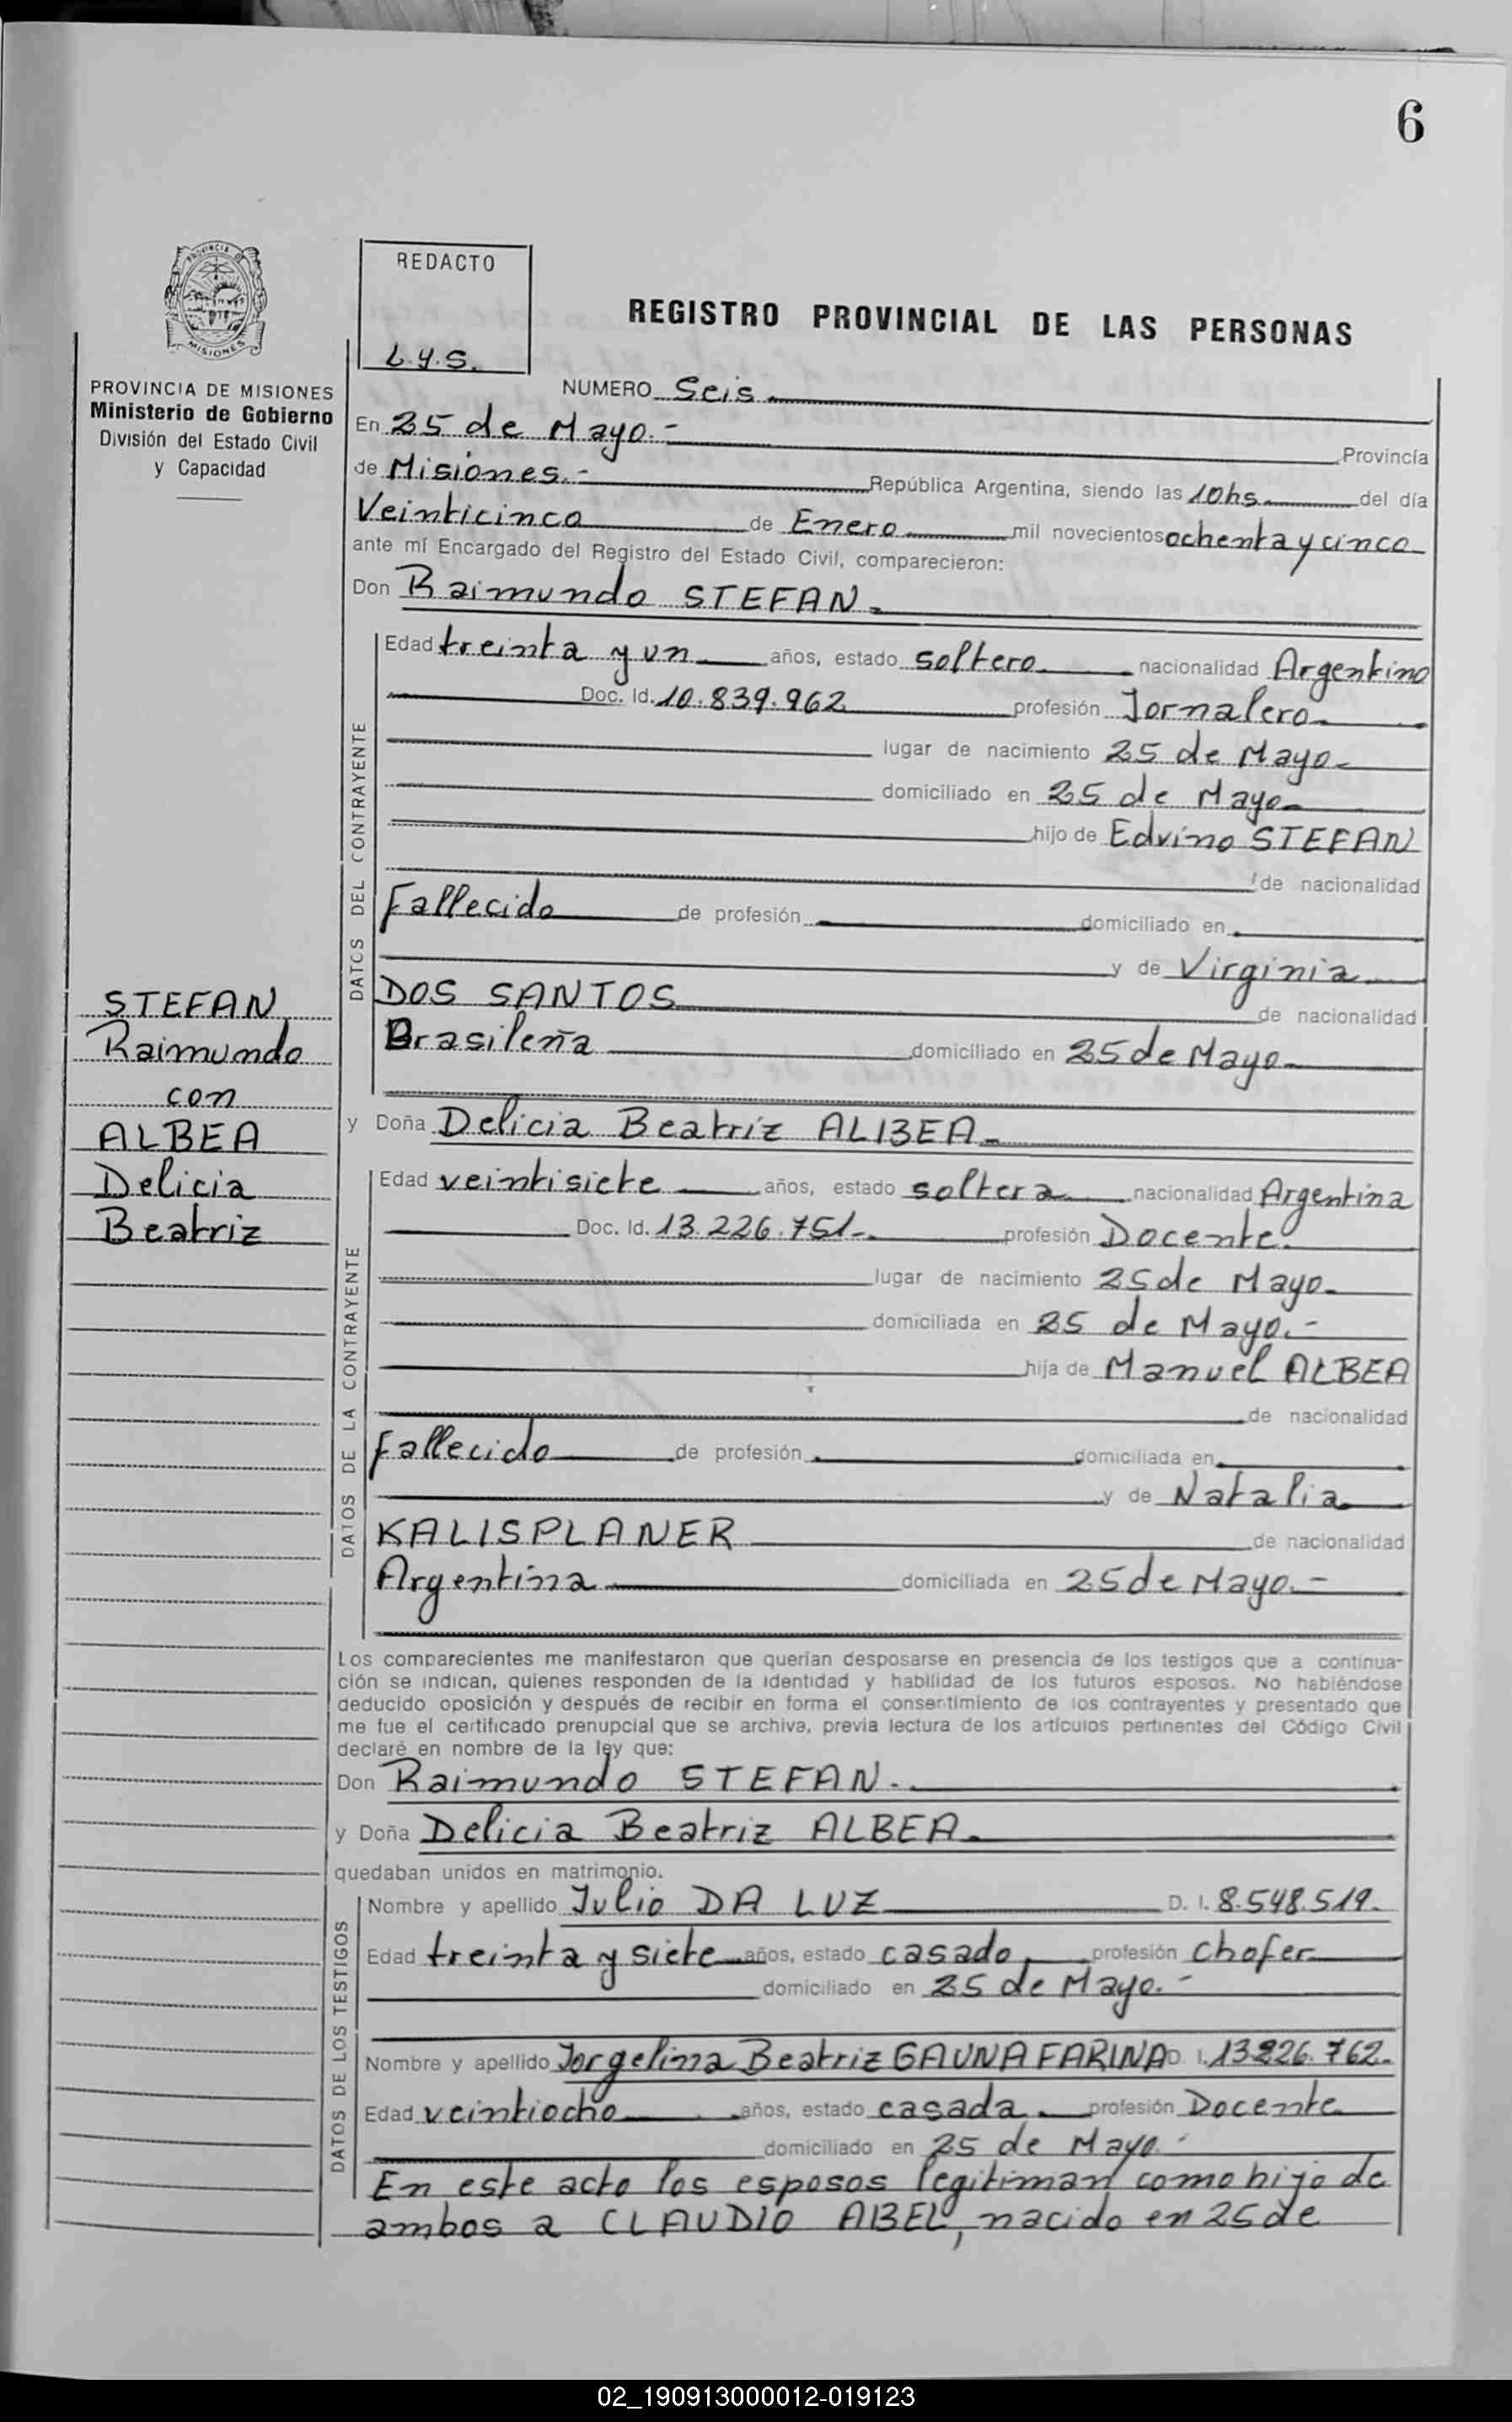 6
REDACTO
L.y.S.
REGISTRO PROVINCIAL DE LAS PERSONAS
PROVINCIA DE MISIONES
Ministerio de Gobierno
División del Estado Civil
y Capacidad
NUMERO Seis.
En 25 de Mayo.- Provincia
de Misiones.- República Argentina, siendo las 10hs. del día
Veinticinco de Enero mil novecientos ochenta y cinco
ante mí Encargado del Registro del Estado Civil, comparecieron:
Don Raimundo STEFAN.
DATOS DEL CONTRAYENTE
Edad treinta y un años, estado soltero nacionalidad Argentino
Doc. Id. 10.839.962 profesión Jornalero
lugar de nacimiento 25 de Mayo
domiciliado en 25 de Mayo
hijo de Edvino STEFAN
de nacionalidad
Fallecido de profesión domiciliado en
y de Virginia
DOS SANTOS de nacionalidad
Brasileña domiciliado en 25 de Mayo
STEFAN
Raimundo
con
ALBEA
Delicia
Beatriz
y Doña Delicia Beatriz ALBEA
DATOS DE LA CONTRAYENTE
Edad veintisiete años, estado soltera nacionalidad Argentina
Doc. Id. 13.226.751.- profesión Docente.
lugar de nacimiento 25 de Mayo
domiciliada en 25 de Mayo.-
hija de Manuel ALBEA
de nacionalidad
Fallecido de profesión domiciliada en
y de Natalia
KALISPLANER de nacionalidad
Argentina domiciliada en 25 de Mayo.-
Los comparecientes me manifestaron que querían desposarse en presencia de los testigos que a continua-
ción se indican, quienes responden de la identidad y habilidad de los futuros esposos. No habiéndose
deducido oposición y después de recibir en forma el consentimiento de los contrayentes y presentado que
me fue el certificado prenupcial que se archiva, previa lectura de los artículos pertinentes del Código Civil
declaré en nombre de la ley que:
Don Raimundo STEFAN.
y Doña Delicia Beatriz ALBEA
quedaban unidos en matrimonio.
DATOS DE LOS TESTIGOS
Nombre y apellido Julio DA LUZ D. I. 8.548.519.
Edad treinta y siete años, estado casado profesión chofer
domiciliado en 25 de Mayo.-
Nombre y apellido Jorgelina Beatriz GAUNA FARINA D. I. 13226.762.
Edad veintiocho años, estado casada profesión Docente
domiciliado en 25 de Mayo.
En este acto los esposos legitiman como hijo de
ambos a CLAUDIO ABEL, nacido en 25 de
02_190913000012-019123